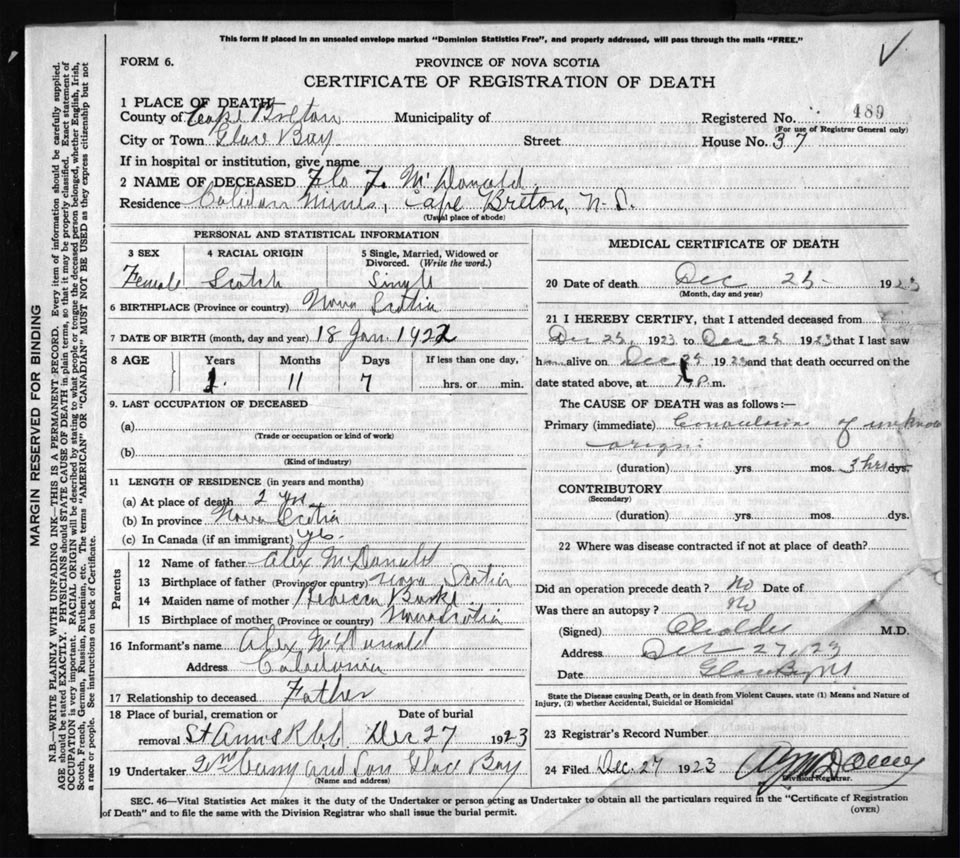 This form if placed in an unsealed envelope marked "Dominion Statistics Free", and properly addressed, will pass through the mails "FREE."
FORM 6.
PROVINCE OF NOVA SCOTIA
CERTIFICATE OF REGISTRATION OF DEATH
1 PLACE OF DEATH
County of Cape Breton Municipality of Registered No. 489
(For use of Registrar General only)
City or Town Glace Bay Street House No. 37
If in hospital or institution, give name
2 NAME OF DECEASED Flo F. McDonald
Residence Mines, Cape Breton, N.S.
(Usual place of abode)
PERSONAL AND STATISTICAL INFORMATION
3 SEX 4 RACIAL ORIGIN 5 Single, Married, Widowed or Divorced. (Write the word.)
Female Scotch Single
6 BIRTHPLACE (Province or country) Nova Scotia
7 DATE OF BIRTH (month, day and year) 18 Jan. 1922
8 AGE Years Months Days If less than one day,
1 11 7 hrs. or min.
9. LAST OCCUPATION OF DECEASED
(a)
(Trade or occupation or kind of work)
(b)
(Kind of industry)
11 LENGTH OF RESIDENCE (in years and months)
(a) At place of death 2 yrs
(b) In province Nova Scotia
(c) In Canada (if an immigrant) yes.
Parents
12 Name of father Alex McDonald
13 Birthplace of father (Province or country) Nova Scotia
14 Maiden name of mother Rebecca Burke
15 Birthplace of mother (Province or country) Nova Scotia
16 Informant's name Alex McDonald
Address Caledonia
17 Relationship to deceased Father
18 Place of burial, cremation or removal Date of burial
St Anns Dec 27 1923
19 Undertaker and Son Glace Bay
(Name and address)
MEDICAL CERTIFICATE OF DEATH
20 Date of death Dec 25 1923
(Month, day and year)
21 I HEREBY CERTIFY, that I attended deceased from
Dec 25, 1923 to Dec 25 1923 that I last saw
h alive on Dec 25 1923 and that death occurred on the
date stated above, at p.m.
The CAUSE OF DEATH was as follows:—
Primary (immediate) Convulsions of unknown
origin
(duration) yrs. mos. 3 hrs dys.
CONTRIBUTORY
(Secondary)
(duration) yrs. mos. dys.
22 Where was disease contracted if not at place of death?
Did an operation precede death? No Date of
Was there an autopsy? No
(Signed) M.D.
Address Dec 27, 23
Date Glace Bay NS
State the Disease causing Death, or in death from Violent Causes, state (1) Means and Nature of
Injury, (2) whether Accidental, Suicidal or Homicidal
23 Registrar's Record Number
24 Filed Dec. 27 1923
Division Registrar.
SEC. 46—Vital Statistics Act makes it the duty of the Undertaker or person acting as Undertaker to obtain all the particulars required in the "Certificate of Registration
of Death" and to file the same with the Division Registrar who shall issue the burial permit.
(OVER)
MARGIN RESERVED FOR BINDING
N.B.—WRITE PLAINLY WITH UNFADING INK—THIS IS A PERMANENT RECORD. Every item of information should be carefully supplied.
AGE should be stated EXACTLY. PHYSICIANS should STATE CAUSE OF DEATH in plain terms, so that it may be properly classified. Exact statement of
OCCUPATION is very important. RACIAL ORIGIN will be described by stating to what people or tongue the deceased person belonged, whether English, Irish,
Scotch, French, German, Russian, Ruthenian, etc. The terms "AMERICAN" OR "CANADIAN" MUST NOT BE USED as they express citizenship but not
a race or people. See instructions on back of Certificate.